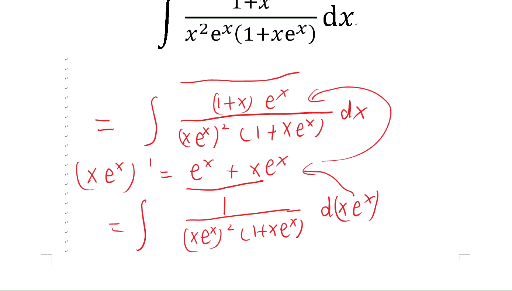 ∫ 1+x / x²eˣ(1+xeˣ) dx.
= ∫ (1+x) eˣ / (xeˣ)² (1+xeˣ) dx
(xeˣ)' = eˣ + xeˣ
= ∫ 1 / (xeˣ)² (1+xeˣ) d(xeˣ)